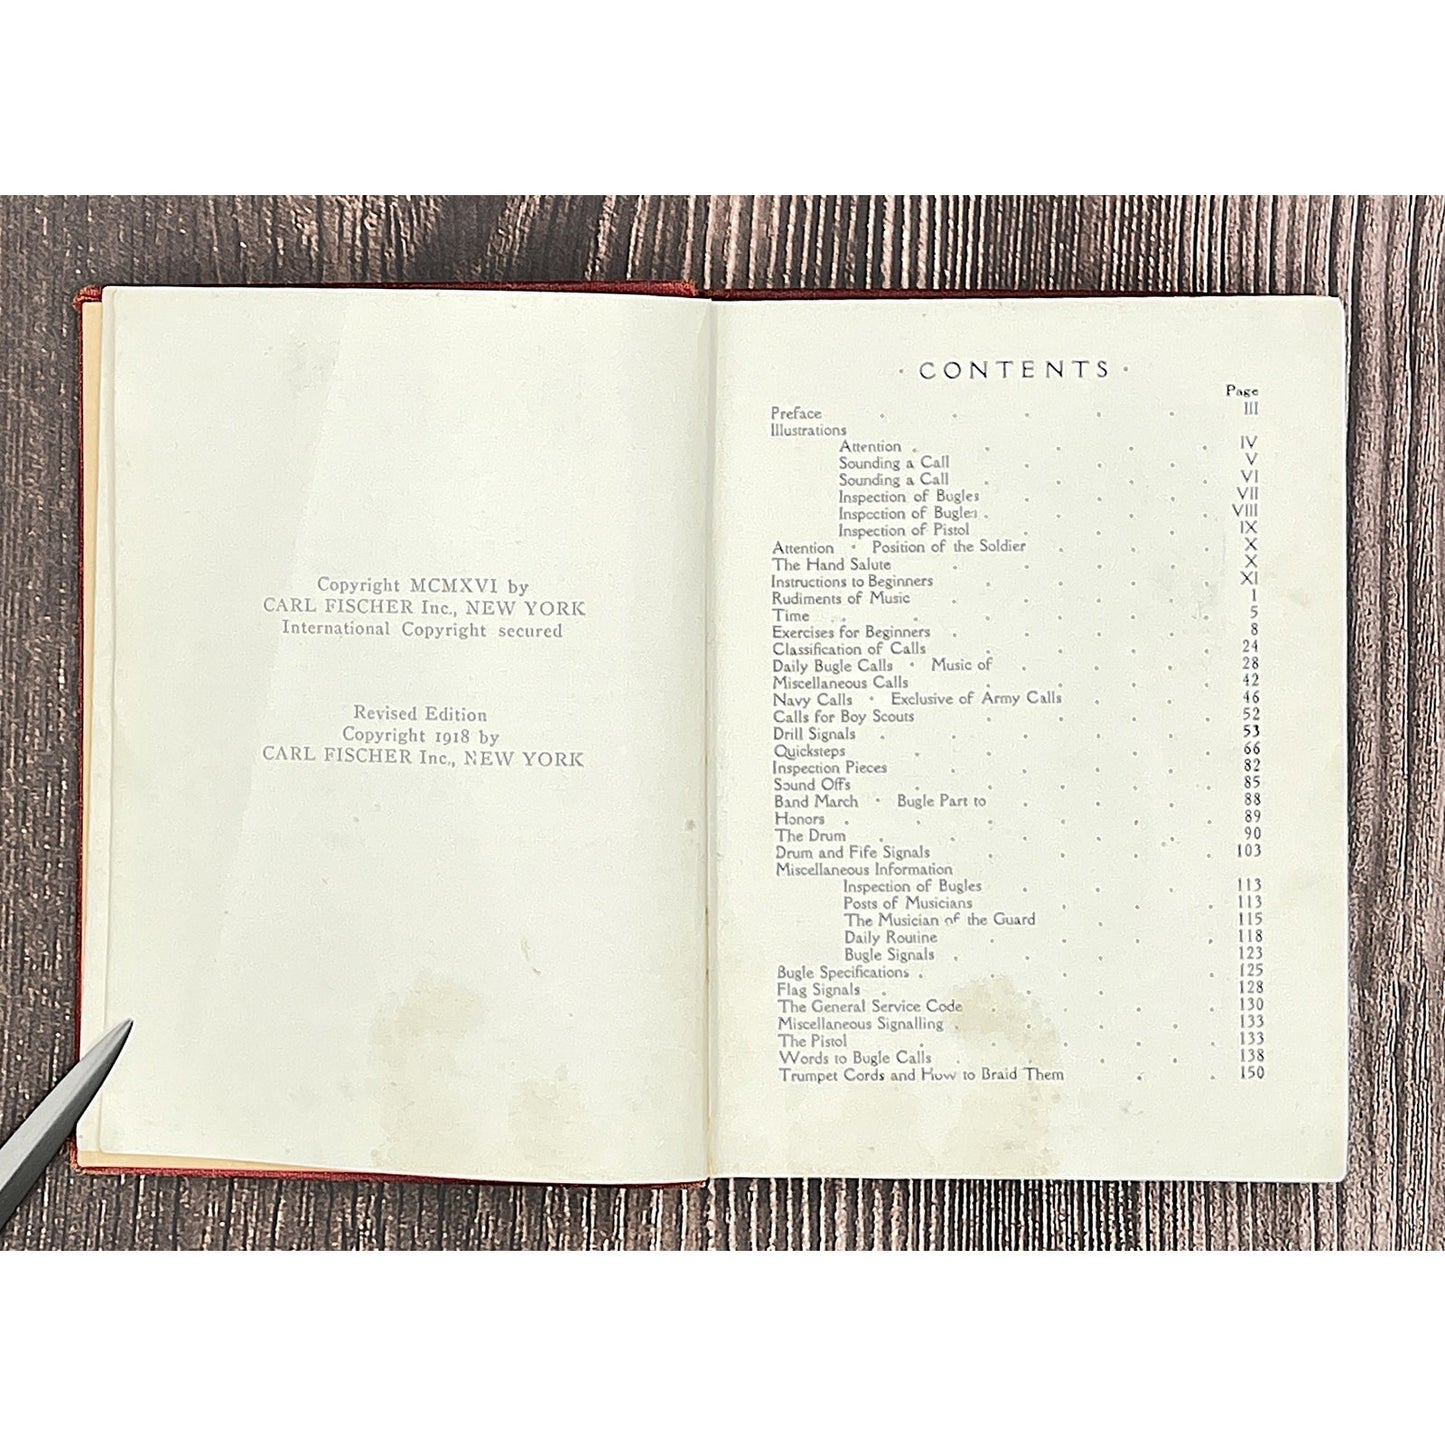 Copyright MCMXVI by
CARL FISCHER Inc., NEW YORK
International Copyright secured
Revised Edition
Copyright 1918 by
CARL FISCHER Inc., NEW YORK
· CONTENTS ·
Page
Preface . . . . . III
Illustrations
Attention . . . . . IV
Sounding a Call . . . . V
Sounding a Call . . . . VI
Inspection of Bugles . . . . VII
Inspection of Bugles . . . . VIII
Inspection of Pistol . . . . IX
Attention · Position of the Soldier . . . X
The Hand Salute . . . . X
Instructions to Beginners . . . . XI
Rudiments of Music . . . . 1
Time . . . . . 5
Exercises for Beginners . . . . 8
Classification of Calls . . . . 24
Daily Bugle Calls · Music of . . . . 28
Miscellaneous Calls . . . . 42
Navy Calls · Exclusive of Army Calls . . . 46
Calls for Boy Scouts . . . . 52
Drill Signals . . . . . 53
Quicksteps . . . . . 66
Inspection Pieces . . . . 82
Sound Offs . . . . . 85
Band March · Bugle Part to . . . . 88
Honors . . . . . . 89
The Drum . . . . . 90
Drum and Fife Signals . . . . 103
Miscellaneous Information
Inspection of Bugles . . . . 113
Posts of Musicians . . . 113
The Musician of the Guard . . . 115
Daily Routine . . . . 118
Bugle Signals . . . . 123
Bugle Specifications . . . . . 125
Flag Signals . . . . . 128
The General Service Code . . . . 130
Miscellaneous Signalling . . . . 133
The Pistol . . . . . 133
Words to Bugle Calls . . . . . 138
Trumpet Cords and How to Braid Them . . 150